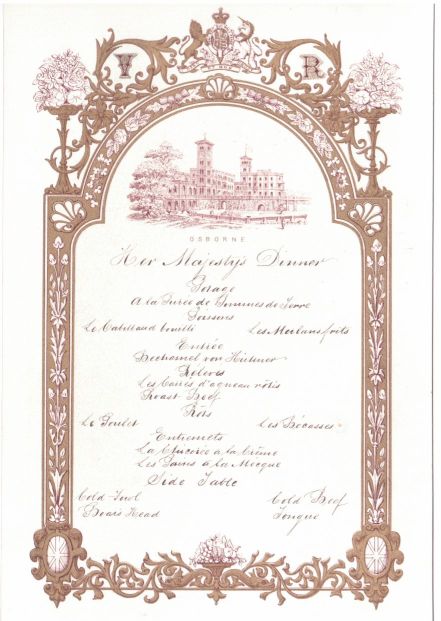 V R
OSBORNE
Her Majesty's Dinner
Potage
A la Purée de Pommes de Terre
Poissons
Le Cabillaud bouilli Les Merlans frits
Entrée
Bechamel von Hühner
Relèves
Les Carrés d'agneau rôtis
Roast Beef
Rots
Le Poulet Les Bécasses
Entremets
La Chicorée à la Crême
Les Pains à la Mecque
Side Table
Cold Fowl Cold Beef
Boar's Head Tongue